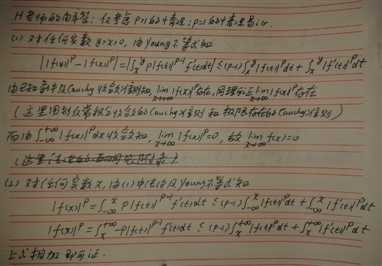 H老师的内容: 仅考虑p>1的情况; p=1的情况显然.
(1) 对任何实数 y>x>0, 由Young不等式知
||f(x)|^p-|f(y)|^p|=|∫_x^y p|f(t)|^{p-1} f'(t)dt| ≤ (p-1)∫_x^y |f(t)|^p dt + ∫_x^y |f'(t)|^p dt
由已知条件及Cauchy收敛准则知, lim_{x→+∞}|f(x)|^p存在, 同理 lim_{x→-∞}|f(x)|^p存在
(这里用到反常积分的Cauchy准则和极限存在的Cauchy准则)
而由∫_{-∞}^{+∞}|f(x)|^p dx收敛知, lim_{x→∞}|f(x)|^p=0, 故 lim_{x→∞} f(x)=0
(这里
(2) 对任何实数x, 由(1)中法及Young不等式知
|f(x)|^p=∫_{-∞}^x p|f(t)|^{p-1} f'(t)dt ≤ (p-1)∫_{-∞}^x |f(t)|^p dt + ∫_{-∞}^x |f'(t)|^p dt
|f(x)|^p=∫_x^{+∞} -p|f(t)|^{p-1} f'(t)dt ≤ (p-1)∫_x^{+∞} |f(t)|^p dt + ∫_x^{+∞} |f'(t)|^p dt
上式相加即可证.